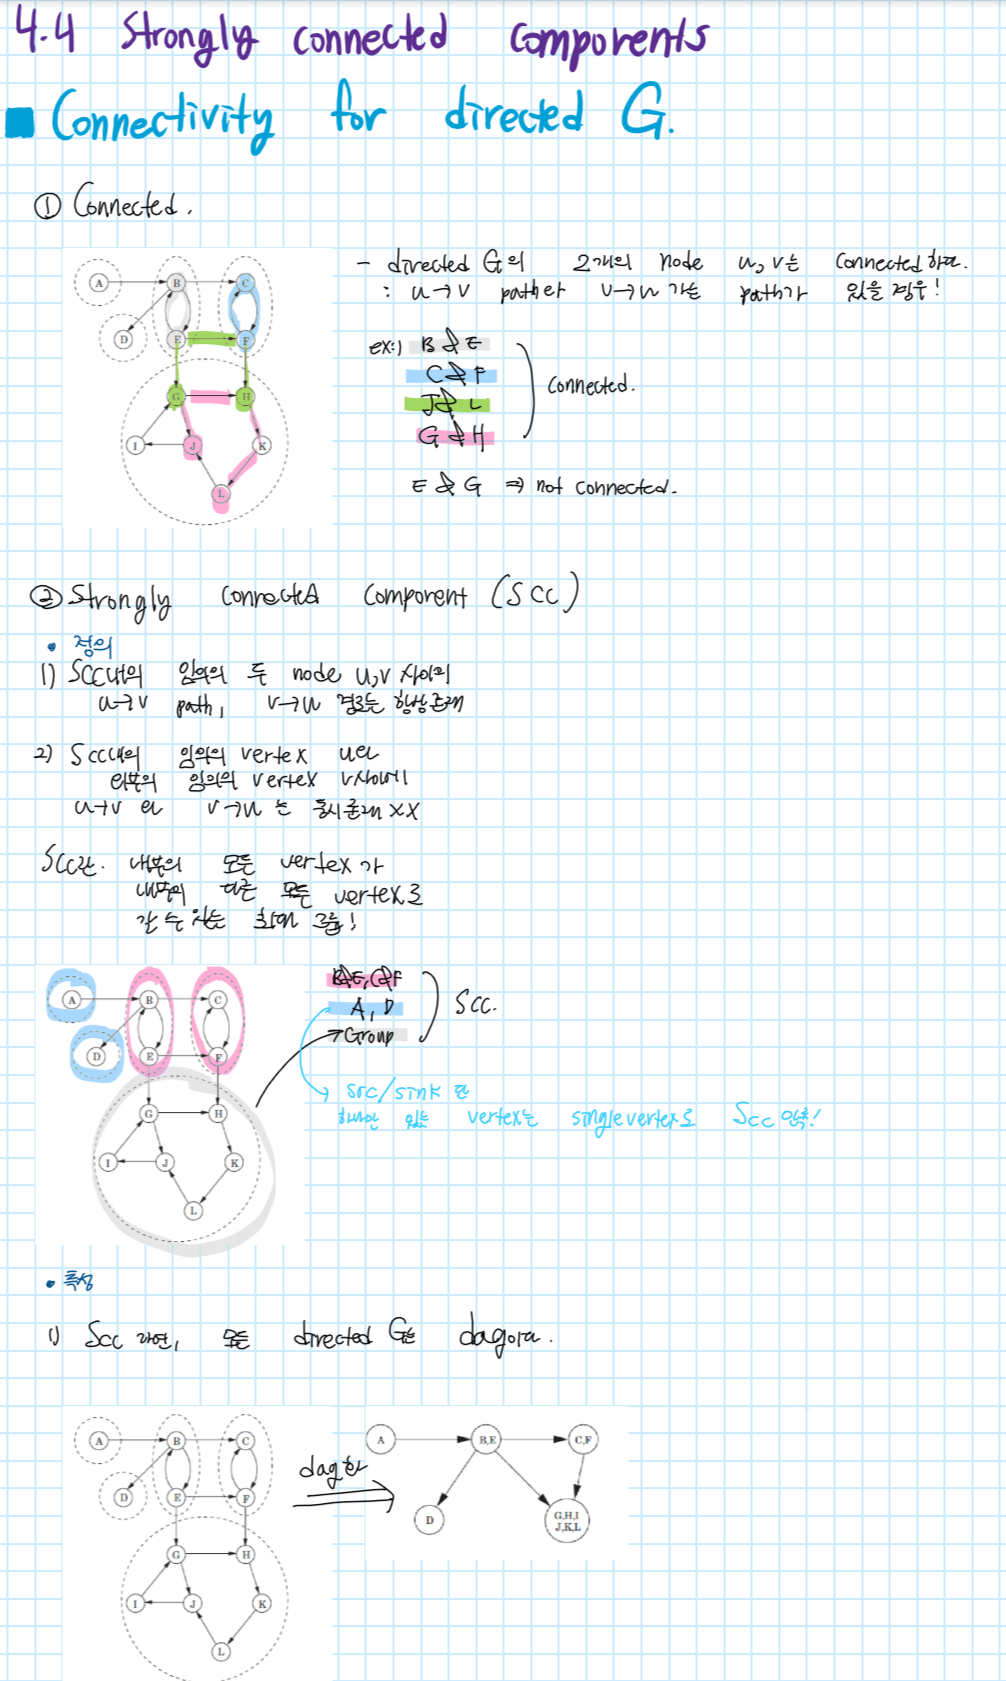 4.4 Strongly connected components
Connectivity for directed G.
① Connected.
A
B
C
D
E
F
G
H
I
J
K
L
- directed G의 2개의 node u, v는 connected하다.
: u→v path와 v→u 가는 path가 있을 경우!
ex:) B & E
C & F
J & L
G & H
connected.
E & G ⇒ not connected.
② Strongly connected component (SCC)
• 정의
1) SCC내의 임의의 두 node u,v 사이의
u→v path, v→u 경로는 항상존재
2) SCC내의 임의의 vertex u와
외부의 임의의 vertex v사이에
u→v 와 v→u 는 동시존재 XX
SCC란. 내부의 모든 vertex가
내부의 다른 모든 vertex로
갈 수 있는 최대 그룹!
A
B
C
D
E
F
G
H
I
J
K
L
B&E, C&F
A, D
Group
SCC.
src/sink 만
하나만 있는 vertex는 single vertex로 SCC
• 특성
1) SCC 라면, 모든 directed G는 dag
A
B
C
D
E
F
G
H
I
J
K
L
dag화
A
B,E
C,F
D
G,H,I
J,K,L